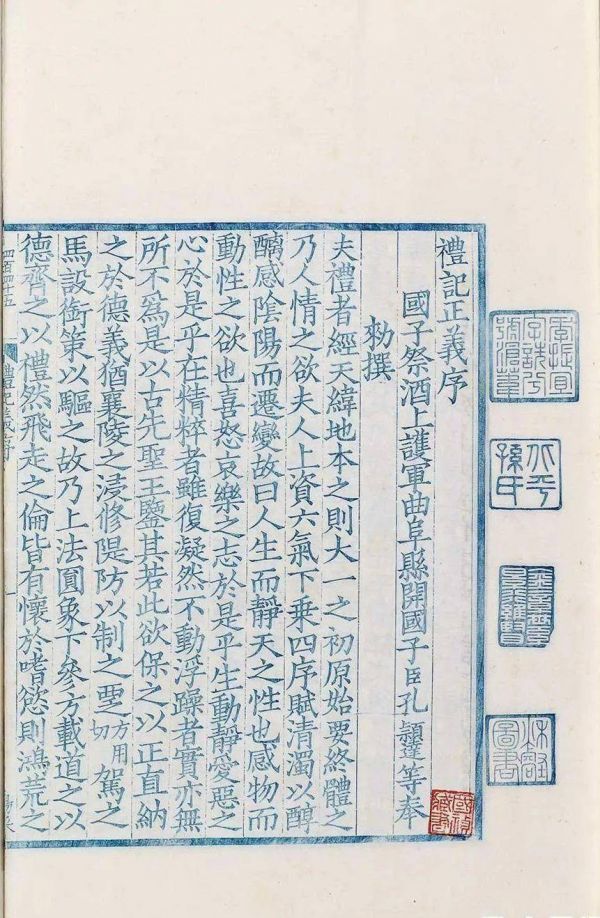 季振宜字詵兮號滄葦
北平孫氏
秋壑圖書
禮記正義序
國子祭酒上護軍曲阜縣開國子臣孔 穎達等奉
勑撰
夫禮者經天緯地本之則大一之初原始要終體之
乃人情之欲夫人上資六氣下乗四序賦清濁以醇
醨感陰陽而遷變故曰人生而靜天之性也感物而
動性之欲也喜怒哀樂之志於是乎生動靜愛惡之
心於是乎在精粹者雖復凝然不動浮躁者實亦無
所不爲是以古先聖王鑒其若此欲保之以正直納
之於德義猶襄陵之浸修隄防以制之覂方用切駕之
馬設銜策以驅之故乃上法圓象下參方載道之以
德齊之以禮然飛走之倫皆有懷於嗜慾則鴻荒之
四百四十五